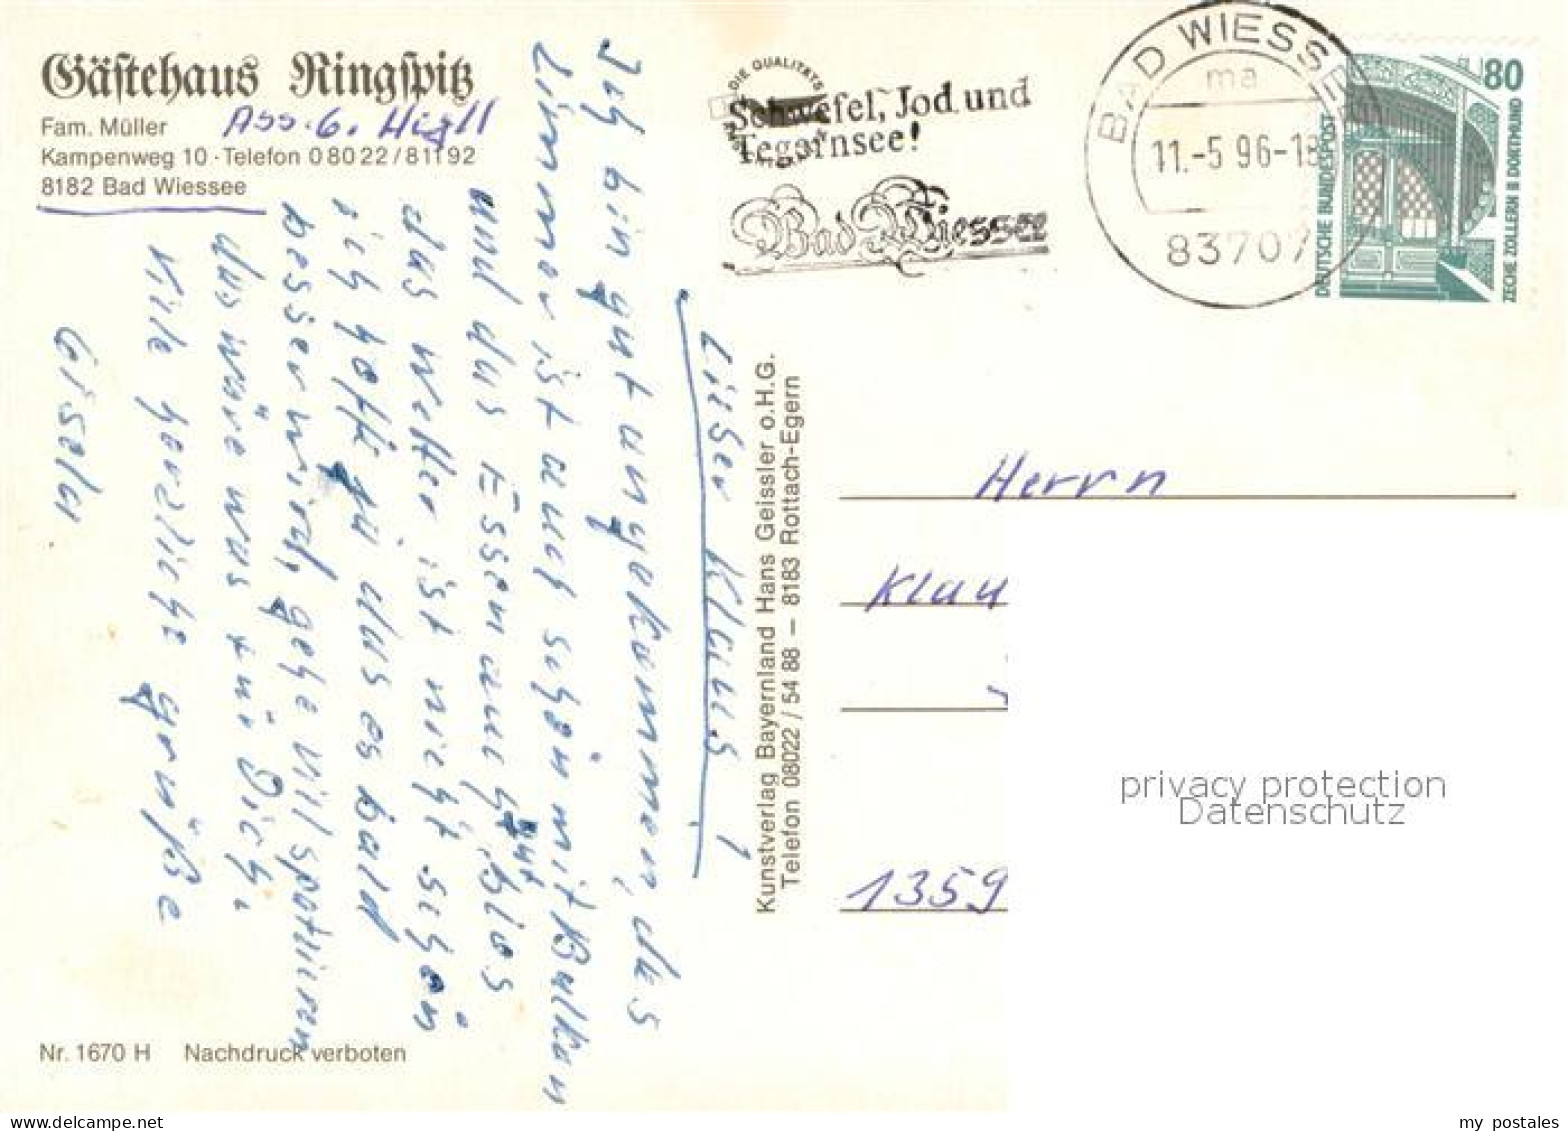 Gästehaus Ringspitz
Fam. Müller
Kampenweg 10 · Telefon 08022/81192
8182 Bad Wiessee
DIE QUALITÄTS
Schwefel, Jod und
Tegernsee!
Bad Wiessee
BAD WIESSEE
ma
11.-5 96-18
83707
80
DEUTSCHE BUNDESPOST
ZECHE ZOLLERN II DORTMUND
Lieber Klaus!
Ich bin gut angekommen, das
Zimmer ist auch schön mit Balkon
und das Essen auch gut, blos
das Wetter ist nicht schön
ich hoffe ja das es bald
besser wird, gehe vil spatziren
das wäre was für Dich.
Vile herzliche grüße
Gisela
Kunstverlag Bayernland Hans Geissler o.H.G.
Telefon 08022 / 54 88 — 8183 Rottach-Egern
Herrn
Klau
1359
privacy protection
Datenschutz
Nr. 1670 H Nachdruck verboten
my postales